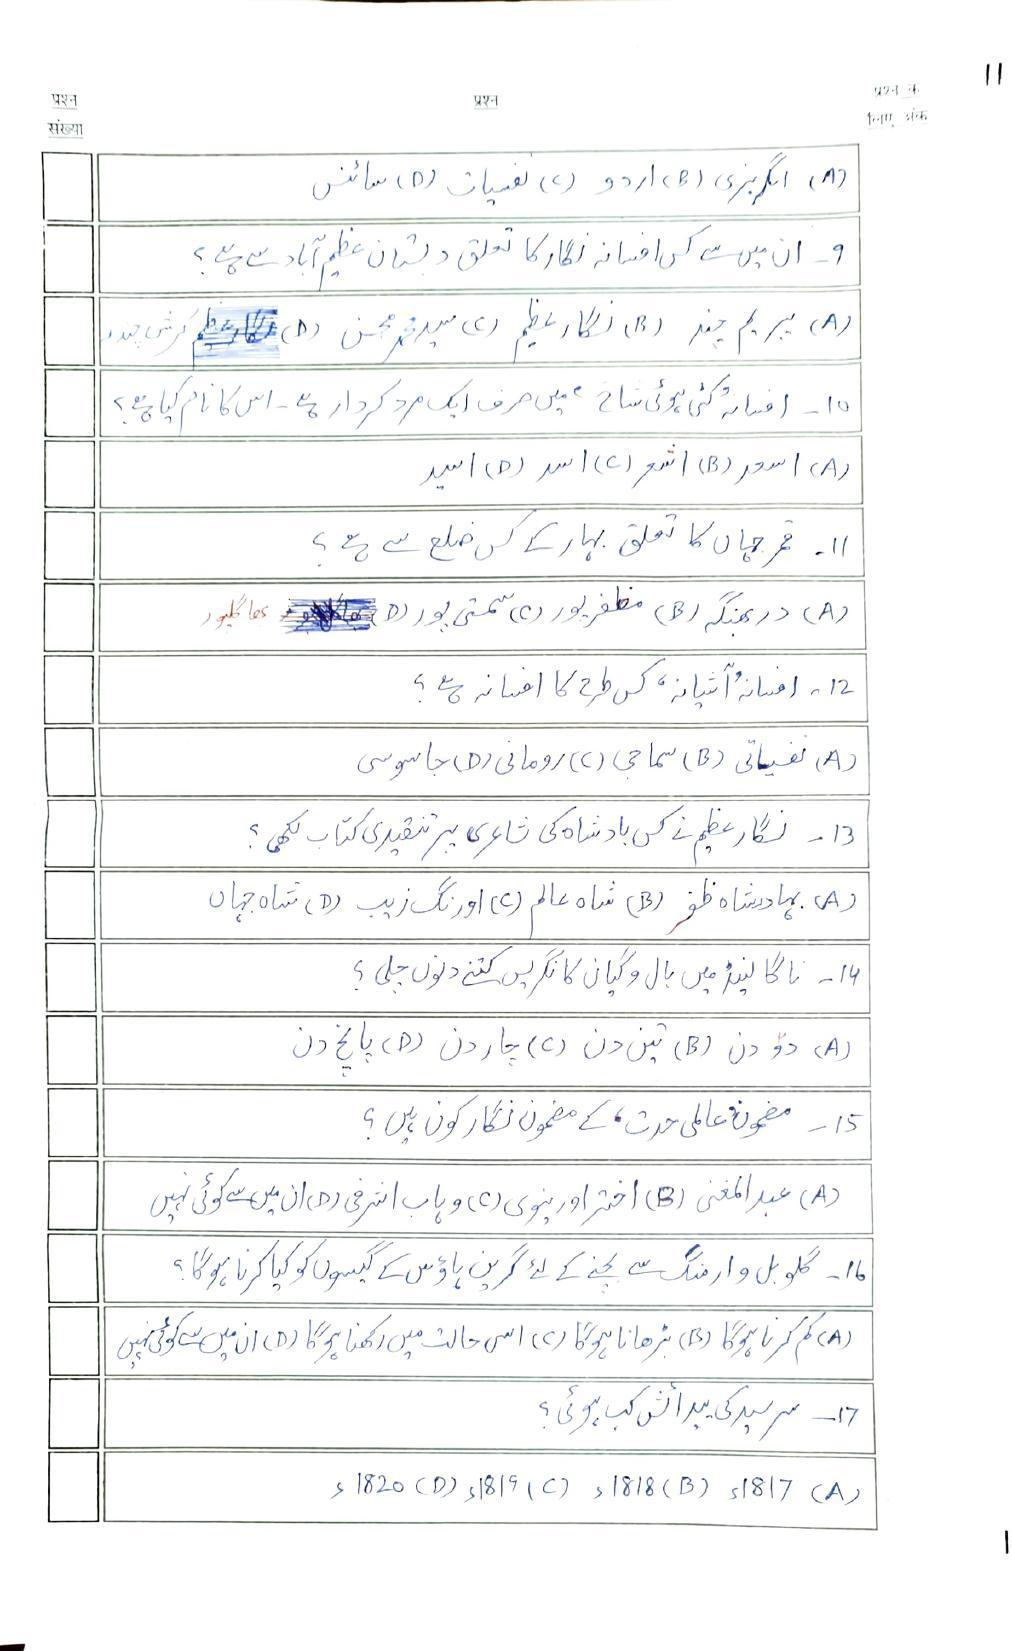 11
प्रश्न संख्या
प्रश्न
प्रश्न के लिए अंक
(A) انگریزی (B) اردو (C) نفسیات (D) سائنس
9۔ ان میں سے کس افسانہ نگار کا تعلق دبستان عظیم آباد سے ہے؟
(A) پریم چند (B) نگار عظیم (C) سید محمد محسن (D) کرشن چندر
10۔ افسانہ ’کٹی ہوئی شاخ‘ میں صرف ایک مرد کردار ہے۔ اس کا نام کیا ہے؟
(A) اسعد (B) اشعر (C) اسد (D) اسید
11۔ قمر جہاں کا تعلق بہار کے کس ضلع سے ہے؟
(A) دربھنگہ (B) مظفر پور (C) سمستی پور (D) بھاگلپور
12۔ افسانہ ’آشیانہ‘ کس طرح کا افسانہ ہے؟
(A) نفسیاتی (B) سماجی (C) رومانی (D) جاسوسی
13۔ نگار عظیم نے کس بادشاہ کی شاعری پر تنقیدی کتاب لکھی؟
(A) بہادر شاہ ظفر (B) شاہ عالم (C) اورنگ زیب (D) شاہ جہاں
14۔ ناگالینڈ میں بال وگیان کانگریس کتنے دنوں چلی؟
(A) دو دن (B) تین دن (C) چار دن (D) پانچ دن
15۔ مضمون ’عالمی حدت‘ کے مضمون نگار کون ہیں؟
(A) عبدالمغنی (B) اختر اورینوی (C) وہاب اشرفی (D) ان میں سے کوئی نہیں
16۔ گلوبل وارمنگ سے بچنے کے لئے گرین ہاؤس کے گیسوں کو کیا کرنا ہوگا؟
(A) کم کرنا ہوگا (B) بڑھانا ہوگا (C) اسی حالت میں رکھنا ہوگا (D) ان میں سے کوئی نہیں
17۔ سرسید کی پیدائش کب ہوئی؟
(A) 1817ء (B) 1818ء (C) 1819ء (D) 1820ء
1